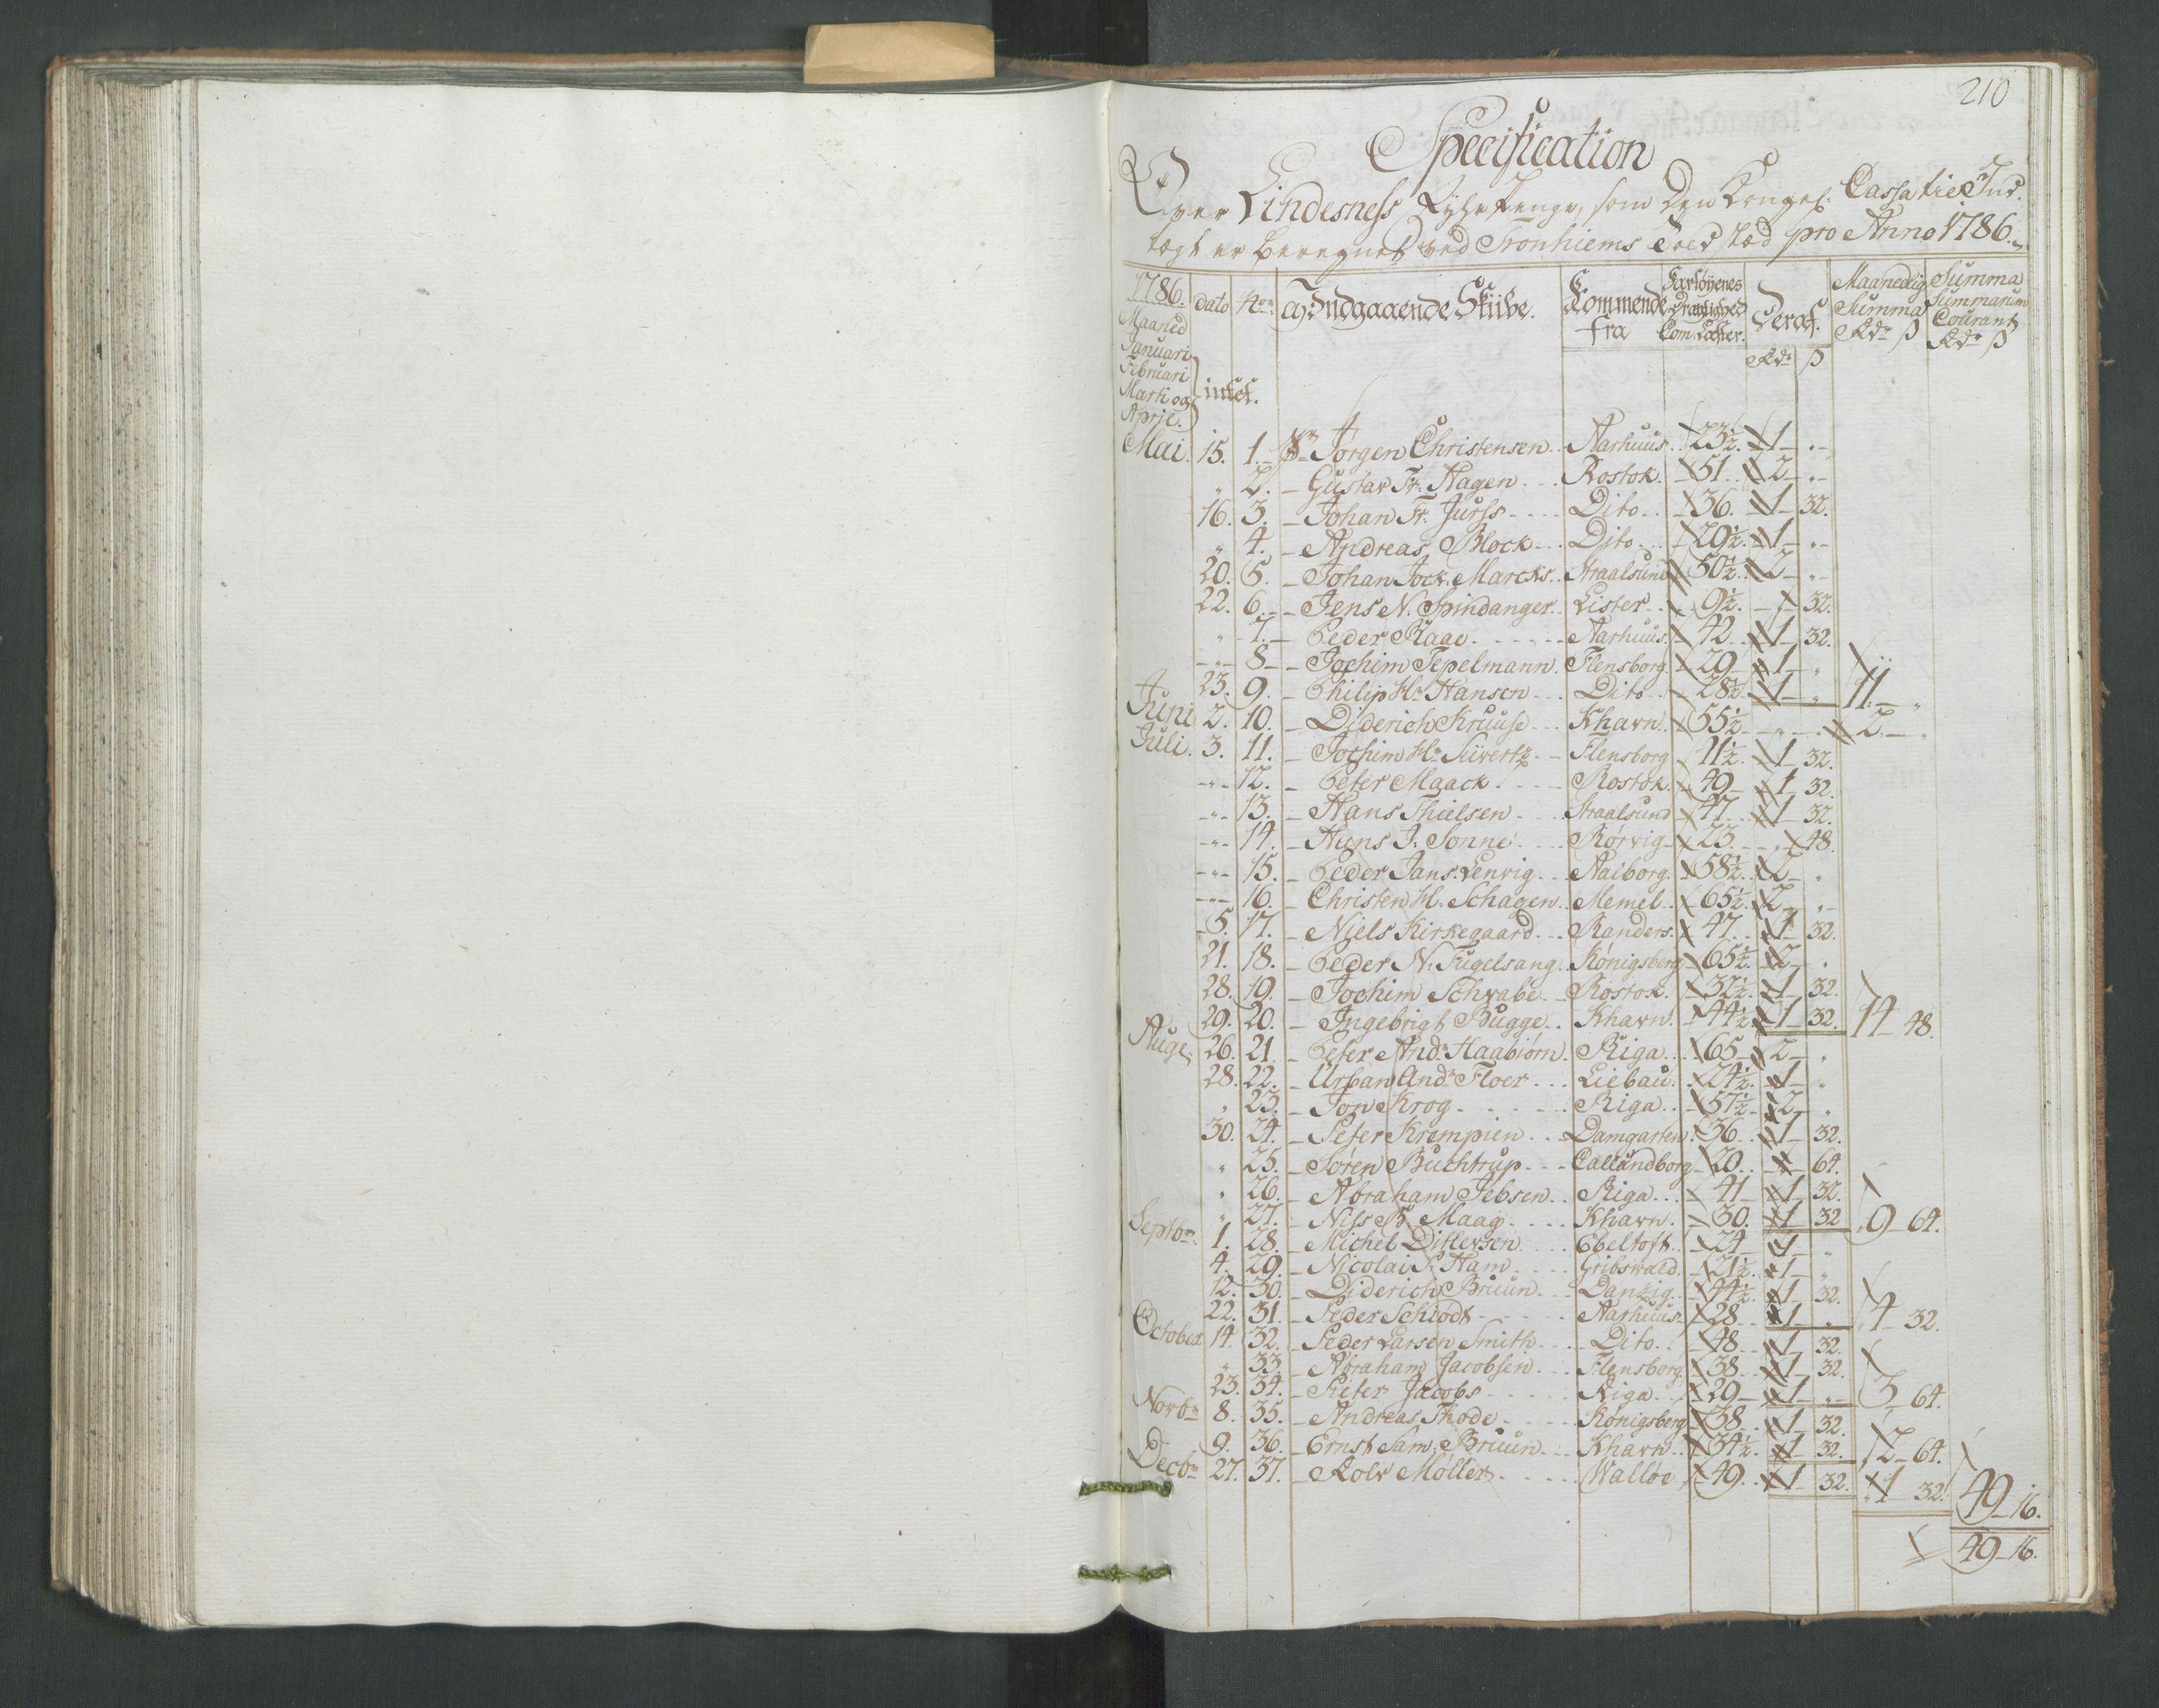 210
Specification
Over Lindesness Fyhr Penge, som den Kongel. Cassa til Ind-
tægt er beregnet ved Tronhiems Told Sted pro Anno 1786.
1786. dato No. a) Indgaaende Skiibe. Kommende fra Fartøyenes Drægtighed Com: Læster. Deraf. Maanedlig Summa Rdr ß Summa Summarum Courant Rdr ß
Maaned Rdr ß
Januari
Februari
Marti og intet.
Aprjl.
Mai. 15. 1. Sr Jørgen Christensen Aarhuus 23½ 1 "
" 2. Gustav Fr. Hagen Rostok. 51 2 "
16. 3. Johan Fr. Jurss Dito 36. 1 32.
" 4. Andreas Block Dito 29½ 1 "
20. 5. Johan Jock. Marcks Straalsund 50½ 2 "
22. 6. Jens N. Spindanger Lister 9½ " 32.
" 7. Peder Raae Aarhuus. 42 1 32.
" 8 Jochim Tepelmann. Flensborg. 29 1 "
23. 9. Philip Hr Hansen Dito 28½ 1 " 11 "
Juni 2. 10. Diderich Kruuse Khavn 55½ " " 2 "
Juli. 3. 11. Jochim Hr Siivertz Flensborg 41½ 1 32.
" 12. Peter Maack Rostok. 49 1 32.
" 13. Hans Thielsen Straalsund 47 1 32.
" 14. Hans J. Sonne Rørvig 23 " 48.
" 15. Peder Jans. Lenvig Aalborg. 58½ 2 "
" 16. Christen H. Schagen Memel 65½ 2 "
5. 17. Niels Kirkegaard Randers. 47 1 32.
21. 18. Peder N. Fugelsang Kønigsberg 65½ 2 "
28. 19. Jochim Schwabe Rostok. 32½ 1 32.
29. 20. Ingebrigt Bugge Khavn 44½ 1 32. 14 48.
Auge. 26. 21. Peter Andr Haabiørn. Riga 65 2 "
28. 22. Urban Andr Floer Liebau. 24½ 1 "
" 23. Jon Krog Riga 57½ 2 "
30. 24. Peter Krempien Damgarten 36 1 32.
" 25. Søren Buchtrup Callundborg 20 " 64.
" 26. Abraham Jebsen Riga 41 1 32.
" 27. Niss B. Maag Khavn. 30. 1 32 9 64.
Septbr 1. 28. Michel Ditlevsen Ebeltoft 24 1 "
4. 29. Nicolai S. Ham Gribswald. 21½ 1 "
12. 30. Diderich Bruun Danzig 44½ 1 32.
22. 31. Peder Schiødt Aarhuus 28 1 " 4 32.
October 14. 32. Peder Larsen Smith Dito 48 1 32.
" 33. Abraham Jacobsen Flensborg 38 1 32.
23. 34. Pieter Jacobs Riga 29 1 " 3 64.
Novbr 8. 35. Andreas Thode Kønigsberg 38 1 32.
9. 36. Ernst Sam. Bruun Khavn 34½ 1 32. 2 64.
Decbr 27. 37. Rolv Møller Walløe 49. 1 32. 1 32. 49 16.
49 16.